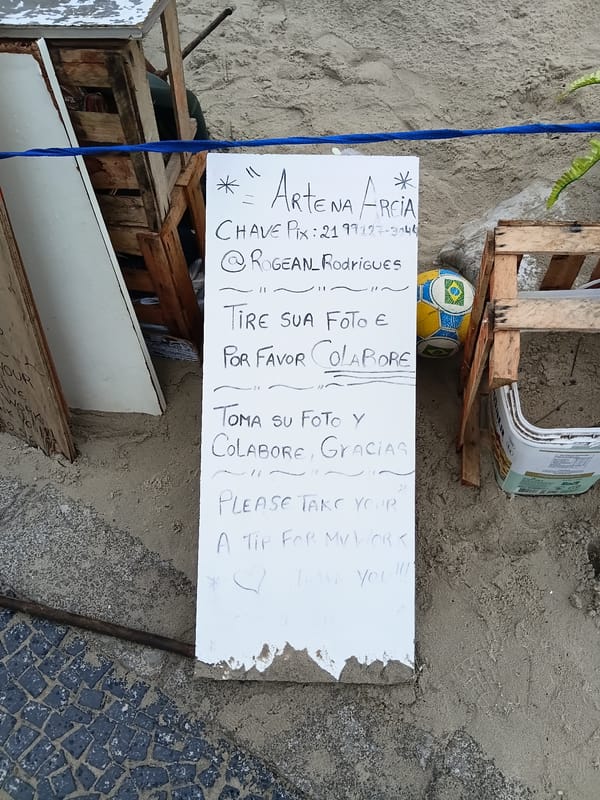 ARTE NA AREIA
CHAVE PIX: 21 99127-3148
@ROGEAN_RODRIGUES
TIRE SUA FOTO E
POR FAVOR COLABORE
TOMA SU FOTO Y
COLABORE, GRACIAS
PLEASE TAKE YOUR
A TIP FOR MY WORK
YOU!!!
OUR